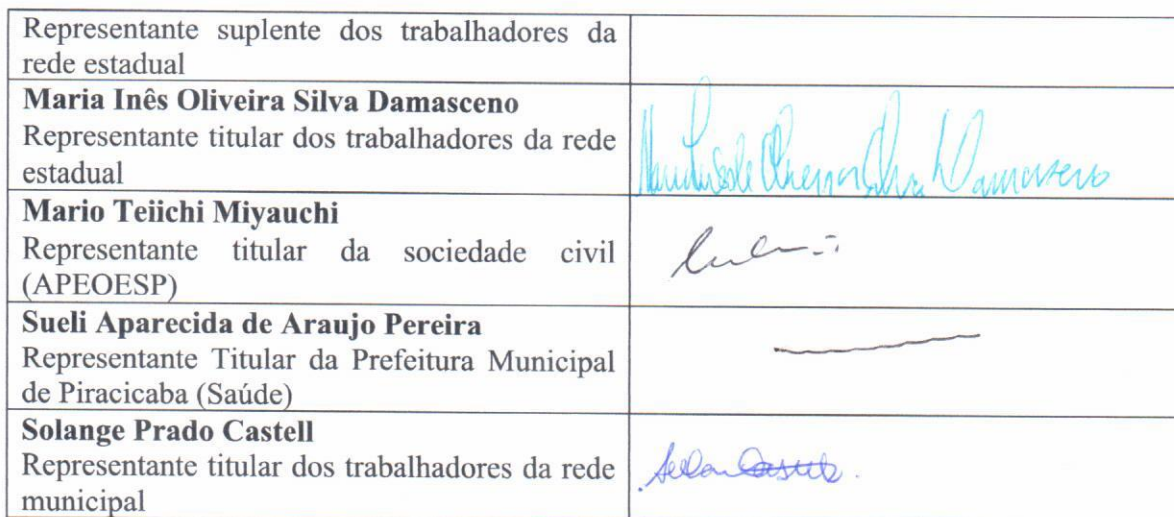 Representante suplente dos trabalhadores da
rede estadual
Maria Inês Oliveira Silva Damasceno
Representante titular dos trabalhadores da rede
estadual
Mario Teiichi Miyauchi
Representante titular da sociedade civil
(APEOESP)
Sueli Aparecida de Araujo Pereira
Representante Titular da Prefeitura Municipal
de Piracicaba (Saúde)
Solange Prado Castell
Representante titular dos trabalhadores da rede
municipal